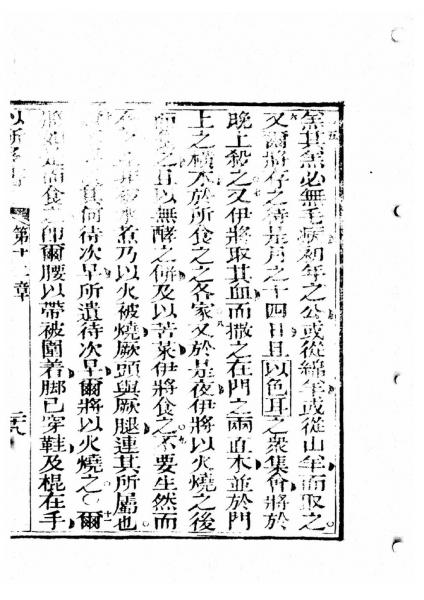 羔其羔必無毛病初年之公或從綿羊或從山羊而取之
又爾將存之待是月之十四日且以色耳之衆集會將於
晚上殺之又伊將取其血而撒之在門之兩直木並於門
上之橫木於所食之之各家又於是夜伊將以火燒之後
而食之且以無酵之餅及以苦菜伊將食之不要生然而
煮乃以火被燒厥頭與厥腿連其所屬也
其何待次早所遺待次早爾將以火燒之爾
將如是而食之卽爾腰以帶被圍着脚已穿鞋及棍在手
第十二章